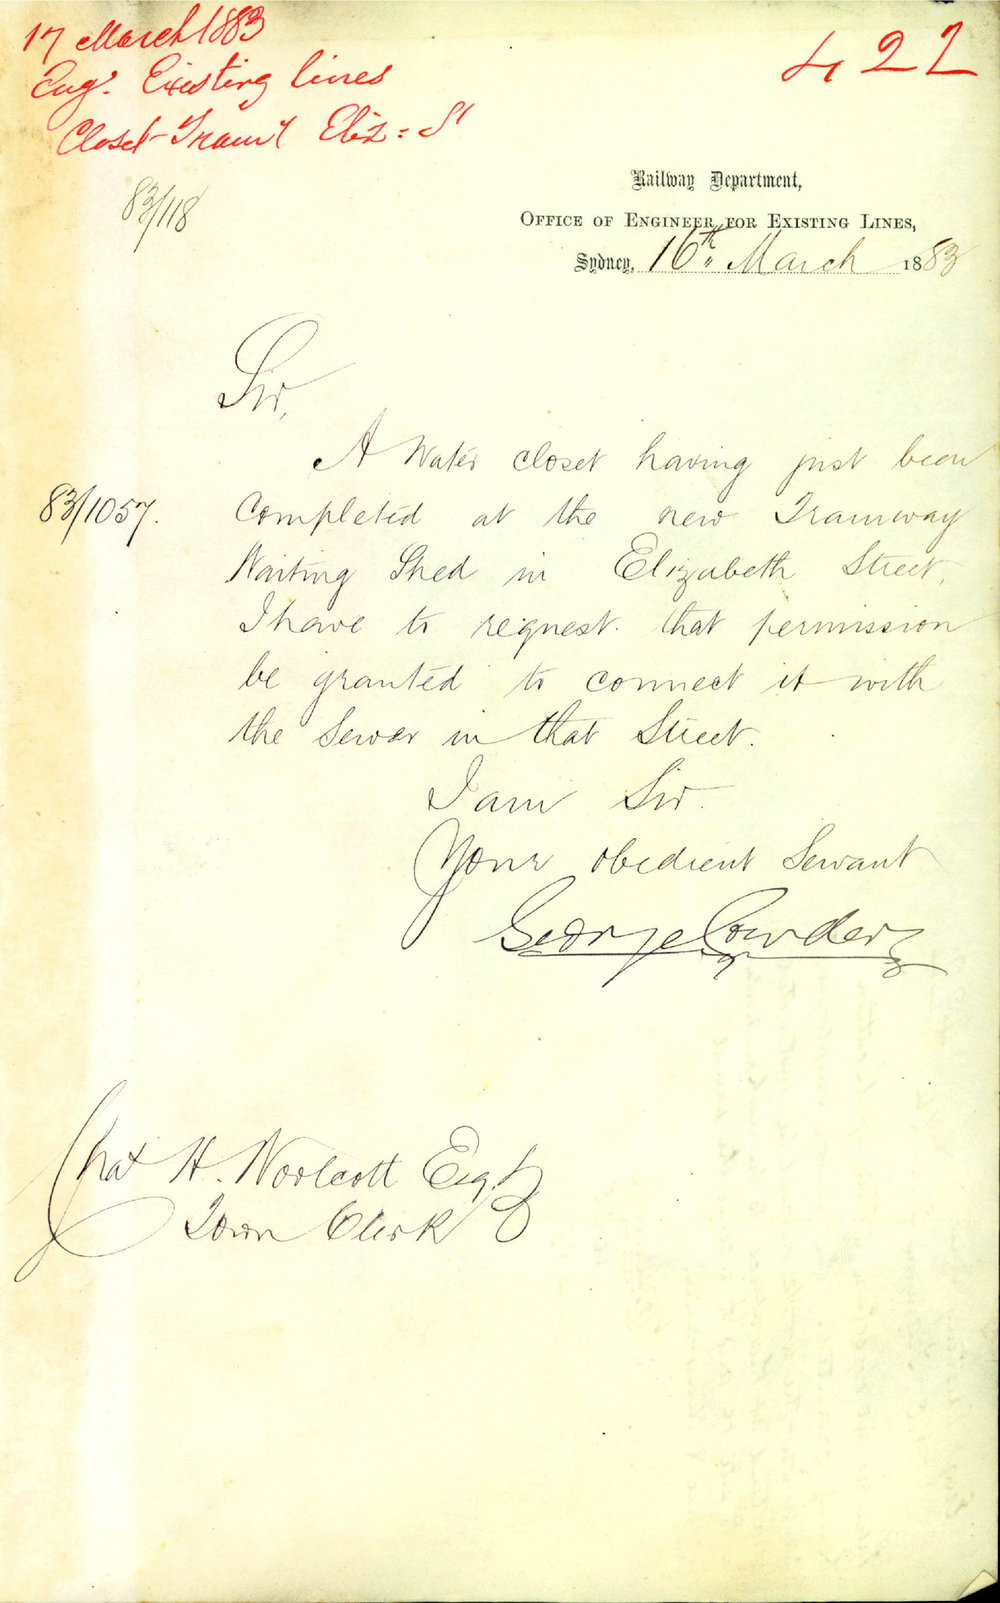 17 March 1883
Engr. Existing lines
Closet - Tramy Eliz: St
422
83/118
Railway Department,
OFFICE OF ENGINEER FOR EXISTING LINES,
Sydney, 16th March 1883
Sir,
A Water closet having just been
83/1057. Completed at the new Tramway
Waiting Shed in Elizabeth Street,
I have to request that permission
be granted to connect it with
the Sewer in that Street.
I am Sir.
Your obedient Servant
George Cowdery
Chas H. Woolcott Esq.
Town Clerk